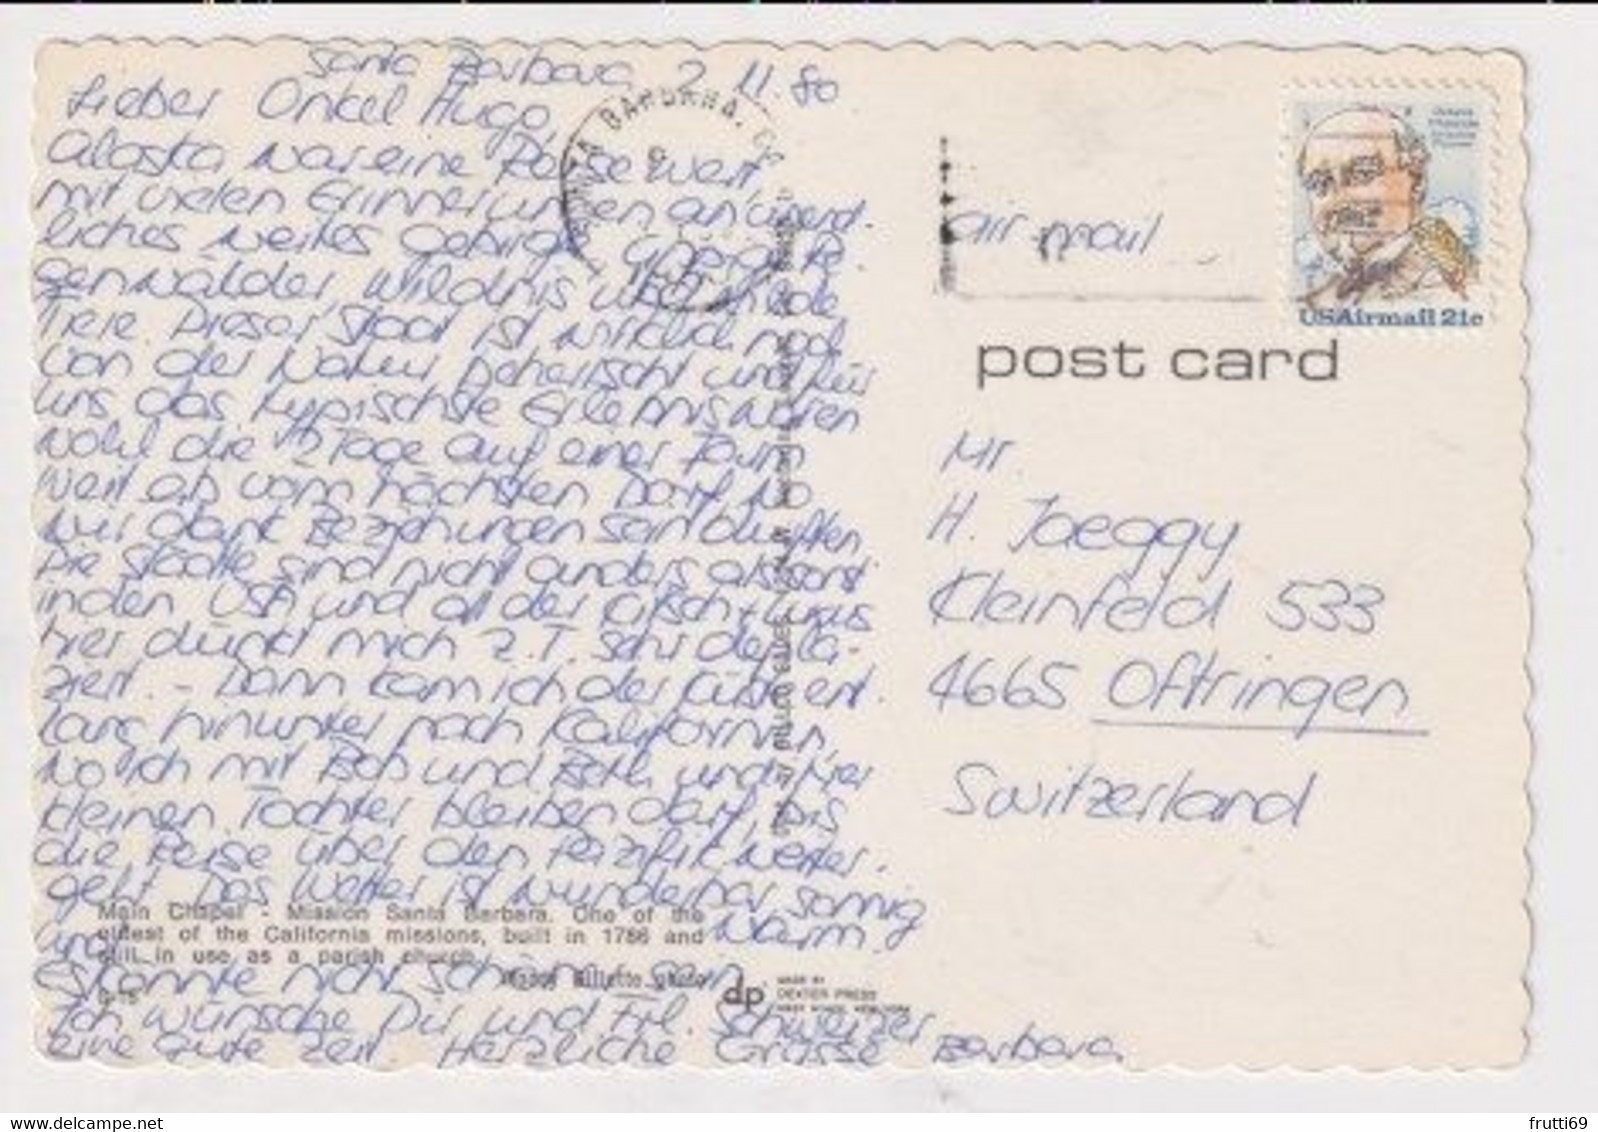 Santa Barbara 2. 11. 80
Lieber Onkel Hugo,
Alaska war eine Reise wert,
mit vielen Erinnerungen an unend-
liches weites Gebirge, üppige Re-
genwälder, Wildnis und wilde
Tiere. Dieser Staat ist wirklich noch
von der Natur beherrscht und für
uns das typischste Erlebnis waren
wohl die Tage auf einer Farm
weit ab vom nächsten Dorf, wo
wir dank Beziehungen sein durften
Die Städte sind nicht anders als sonst
in den USA und all der Kitsch + Luxus
hier dünkt mich z.T. sehr depla-
ziert. - Dann kam ich der Küste ent-
lang hinunter nach Kalifornien,
wo ich mit Bob und Beth und ihrer
kleinen Tochter bleiben darf, bis
die Reise über den Pazifik weiter-
geht. Das Wetter ist wunderbar sonnig
und warm.
es könnte nicht schöner sein.
Ich wünsche Dir und Frl. Schweizer
eine gute Zeit. Herzliche Grüsse Barbara
Main Chapel - Mission Santa Barbara. One of the
oldest of the California missions, built in 1786 and
still in use as a parish church.
Gillette photo
dp
MADE BY
DEXTER PRESS
WEST NYACK, NEW YORK
SANTA BARBARA, CA
air mail
USAirmail 21c
post card
Mr.
H. Jaeggy
Kleinfeld 533
4665 Oftringen
Switzerland
frutti69